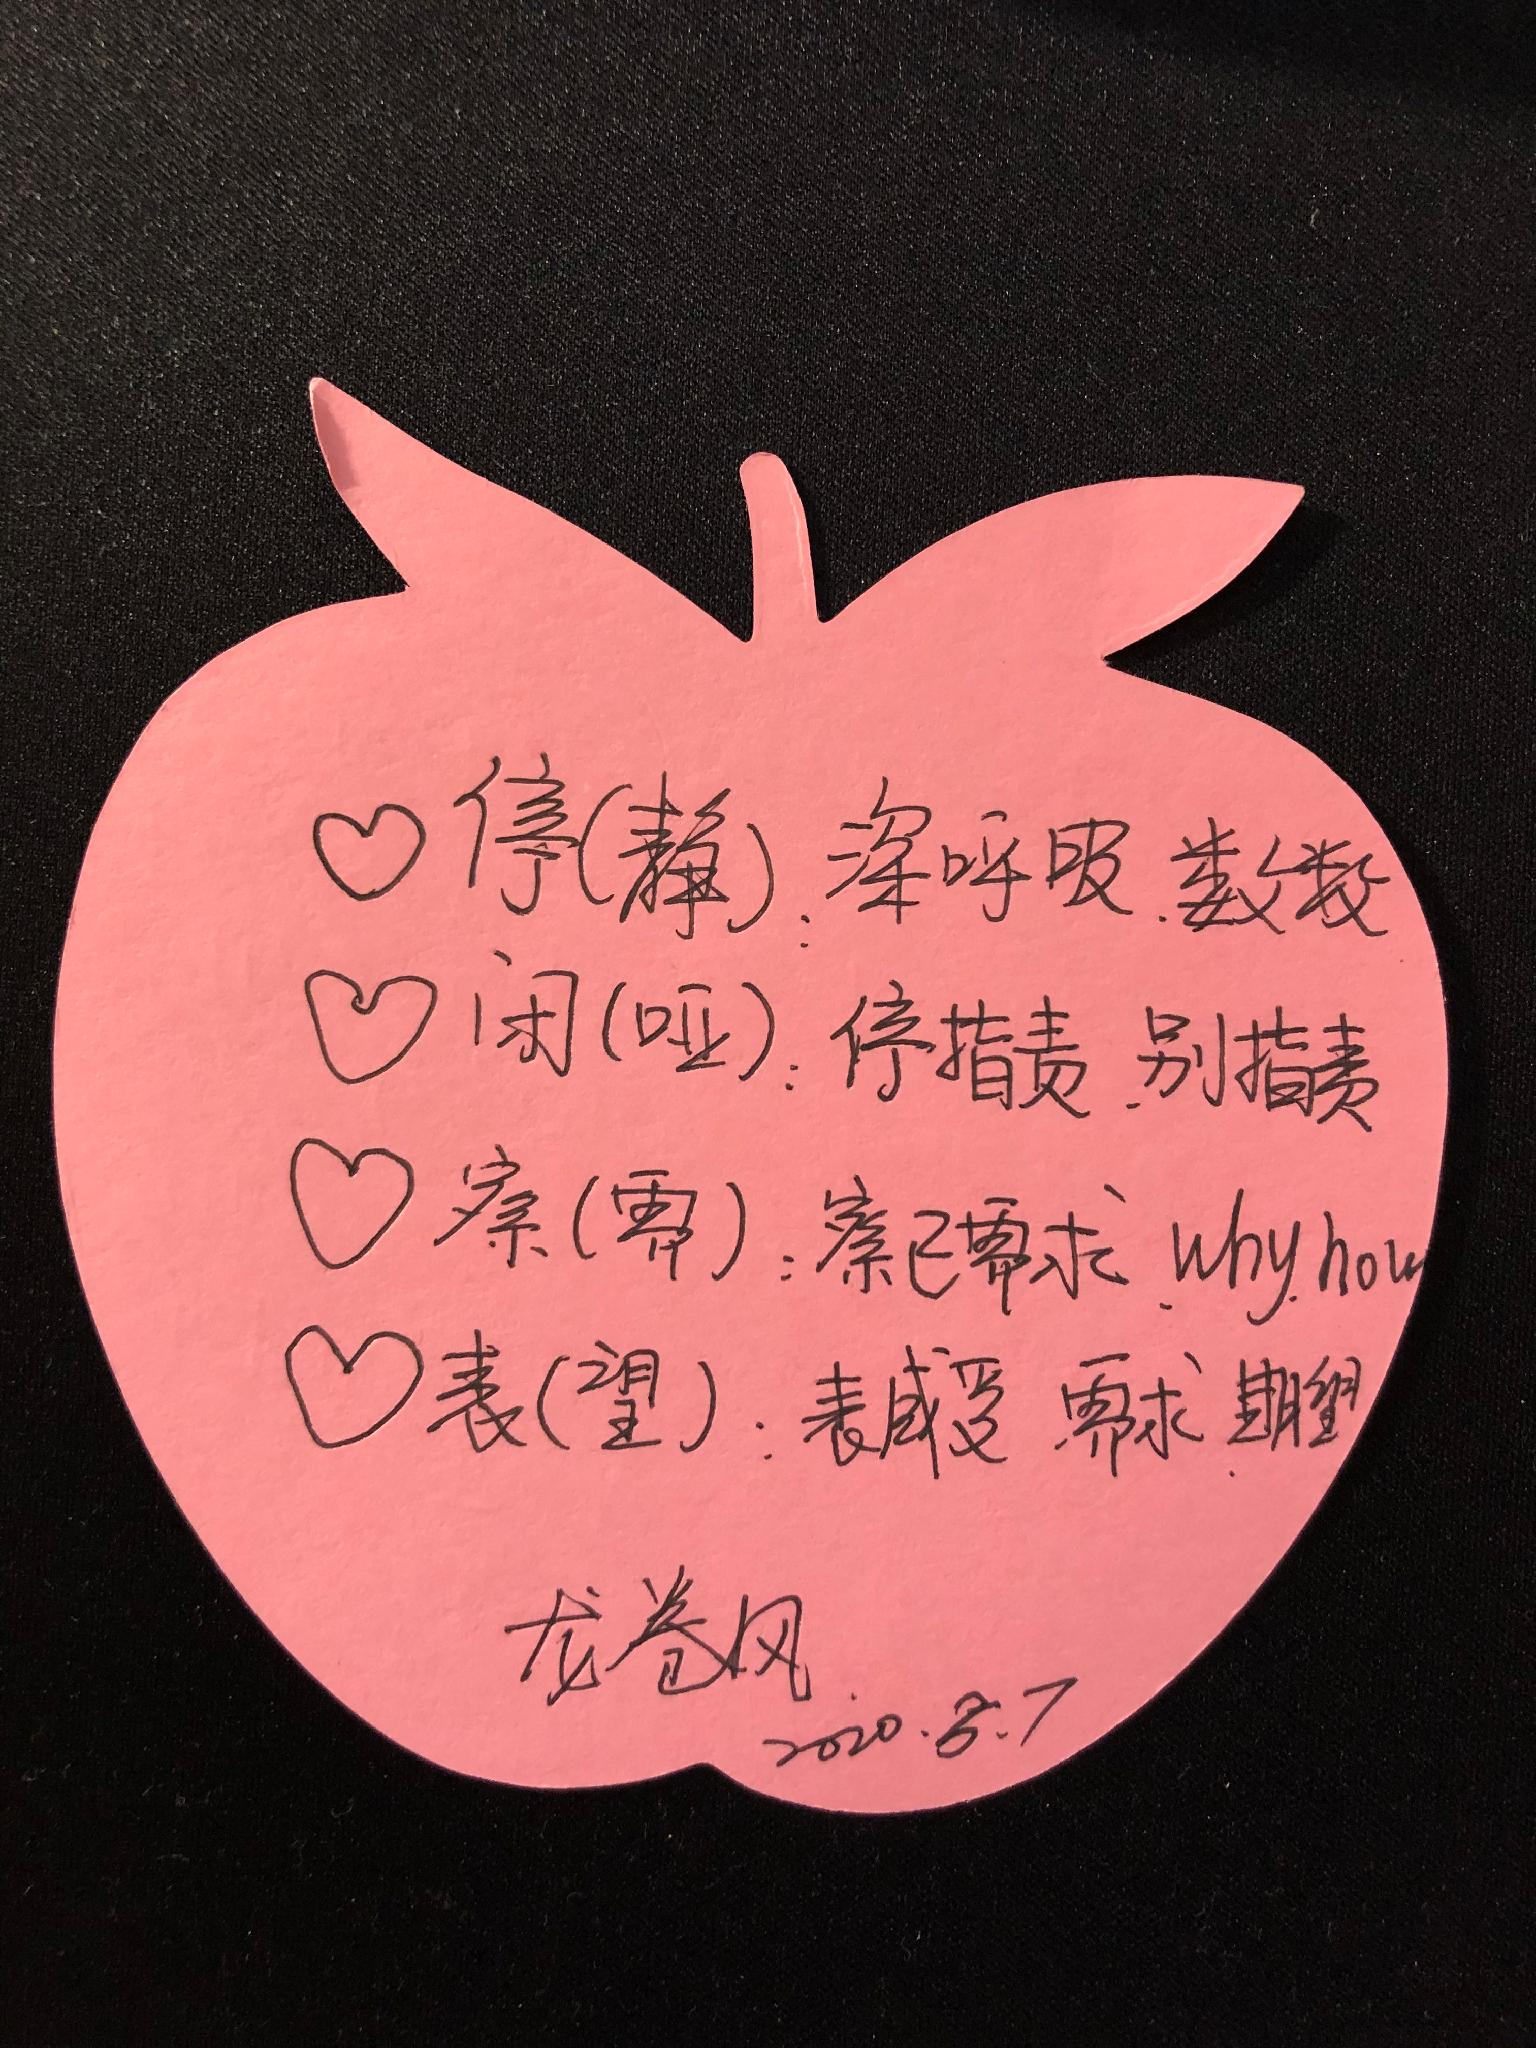 ♡ 停(静):深呼吸.数数
♡ 闭(哑):停指责.别指责
♡ 察(需):察己需求.why.how
♡ 表(望):表感受 需求.期望
龙卷风
2020.8.7